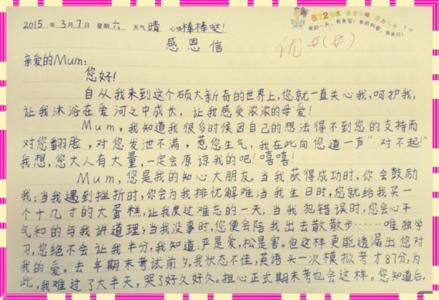 2015年3月7日 星期六 天气晴 心情棒棒哒!
感恩信
亲爱的Mum:
您好!
自从我来到这个硕大新奇的世界上,您就一直关心我,呵护我,
让我沐浴在爱河之中成长,让我感受浓浓的母爱!
Mum,我知道我很多时候因自己的想法得不到您的支持而
对您翻脸,对您发泄不满,惹您生气,我在此向您道一声“对不起!”
我想,您大人有大量,一定会原谅我的吧!嘻嘻!
Mum,您是我的知心大朋友,当我获得成功时,你会鼓励
我;当我遇到挫折时,你会为我排忧解难;当我生日时,您就给我买一
个十几寸的大蛋糕,让我度过难忘的一天,当我犯错误时,您会心平
气和的与我讲道理;当我没事时,您便会陪我出去散散步……唯独学
习,您绝不会让我半分,我知道:严是爱,松是害,但这样更能透漏出您对
我的爱。去年期末考试前夕,我状态不佳,英语头一次模拟考才87分,为
此,我难过了大半天,哭了好久好久。担心正式期末考也会这样。您知道后,